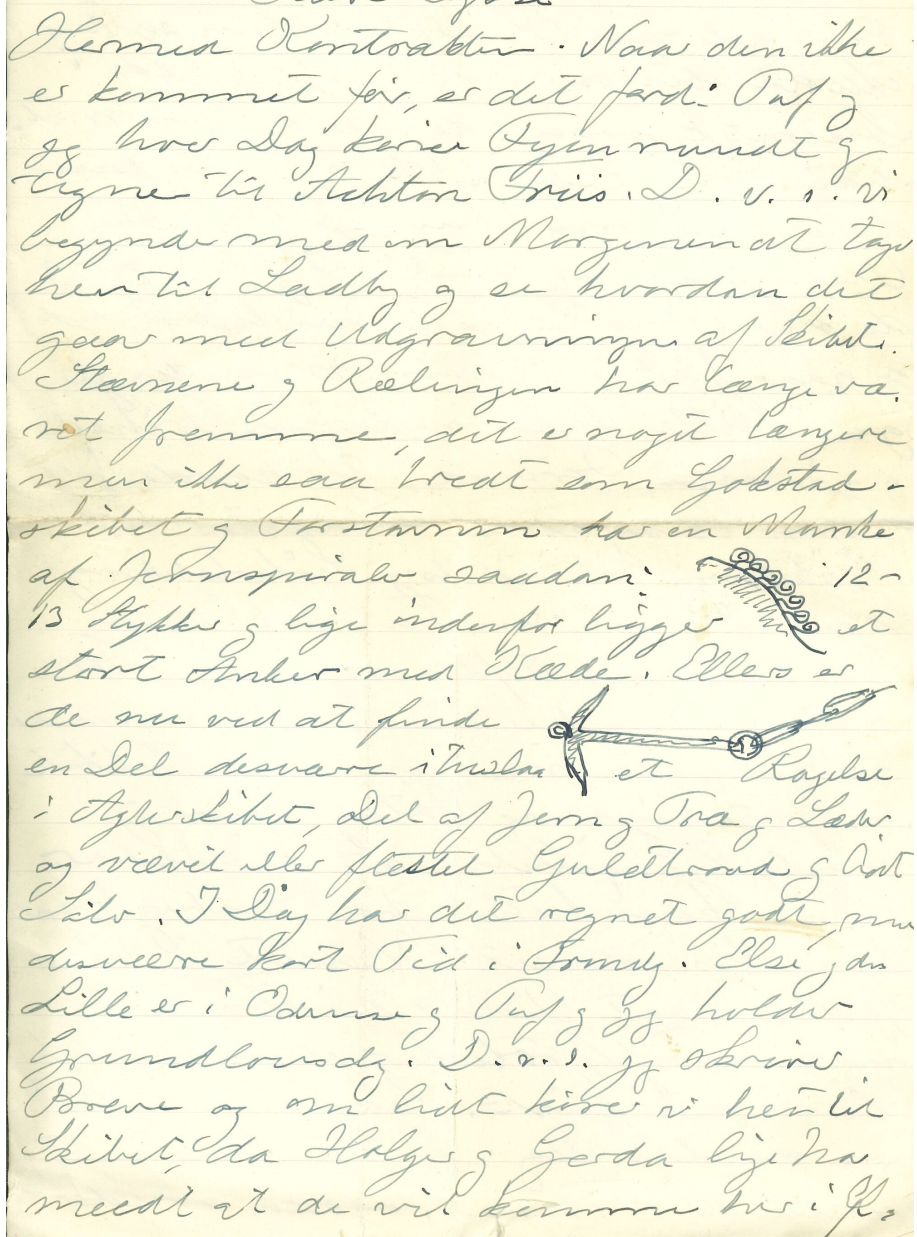 Hermed Kontrakten. Naar den ikke
er kommet før, er det fordi Puf og
jeg hver Dag kører Fyen rundt og
tegner til Achton Friis. D. v. s. vi
begynder med om Morgenen at tage
hen til Ladby og se hvordan det
gaar med Udgravningen af Skibet.
Stævnene og Rælingen har længe væ-
ret fremme, det er noget længere
men ikke saa bredt som Gokstad-
skibet og Forstavnen har en Manke
af Jernspiraler saadan: 12-
13 Stykker og lige indenfor ligger et
stort Anker med Kæde. Ellers er
de nu ved at finde
en Del desværre et Ragelse
i Agterskibet, Del af Jern og Træ og Læder
og vævet eller flettet Guldtraad og
Sølv. I Dag har det regnet godt, men
desværre kort Tid i Formdg. Else og den
Lille er i Odense og Puf og jeg holder
Grundlovsdg. D. v. s. jeg skriver
Breve og om lidt kører vi hen til
Skibet, da Holger og Gerda lige har
meedt at de vil komme her i